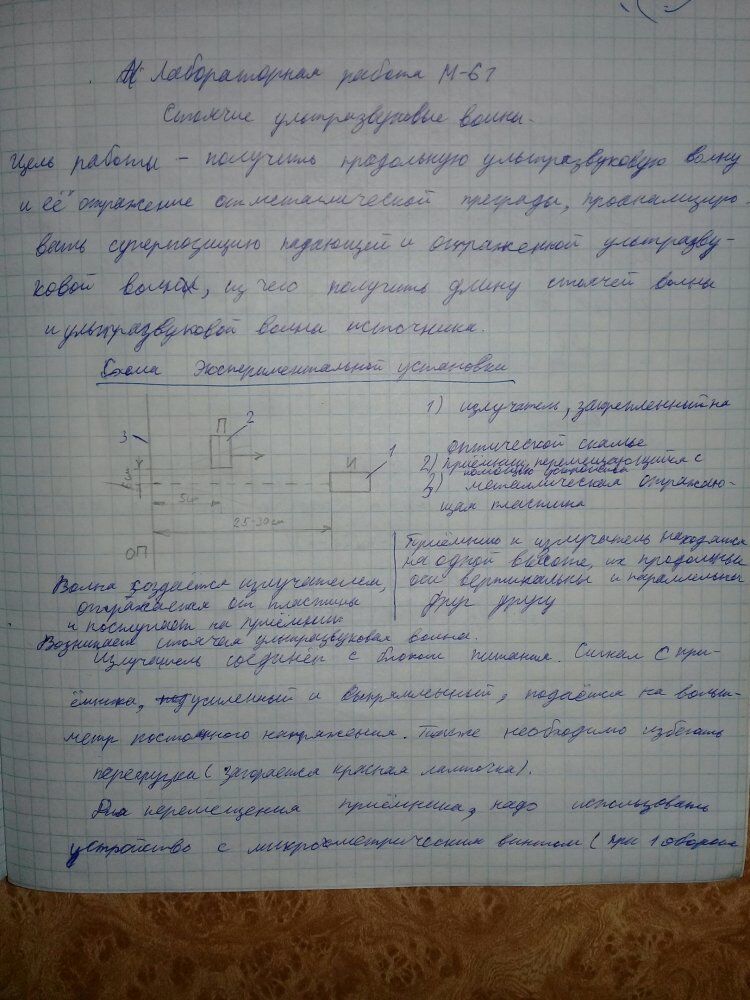 Лабораторная работа М-61
Стоячие ультразвуковые волны.
Цель работы – получить продольную ультразвуковую волну
и её отражение от металлической преграды, проанализиро-
вать суперпозицию падающей и отраженной ультразву-
ковой волны, из чего получить длину стоячей волны
и ультразвуковой волны источника.
Схема Экспериментальной установки
1) излучатель, закрепленный на
оптической скамье
2) Приёмник, перемещающийся с
помощью устройства
3) металлическая отражаю-
щая пластина
3
П
2
И
1
6см
5см
25-30см
ОП
Приёмник и излучатель находятся
на одной высоте, их продольные
оси вертикальны и параллельны
друг другу
Волна создаётся излучателем,
отражается от пластины
и поступает на приёмник
Возникает стоячая ультразвуковая волна.
Излучатель соединён с блоком питания. Сигнал с при-
ёмника, усиленный и выпрямленный, подаётся на вольт-
метр постоянного напряжения. Также необходимо избегать
перегрузки (загорается красная лампочка).
Для перемещения приёмника, надо использовать
устройство с микрометрическим винтом (при 1 обороте